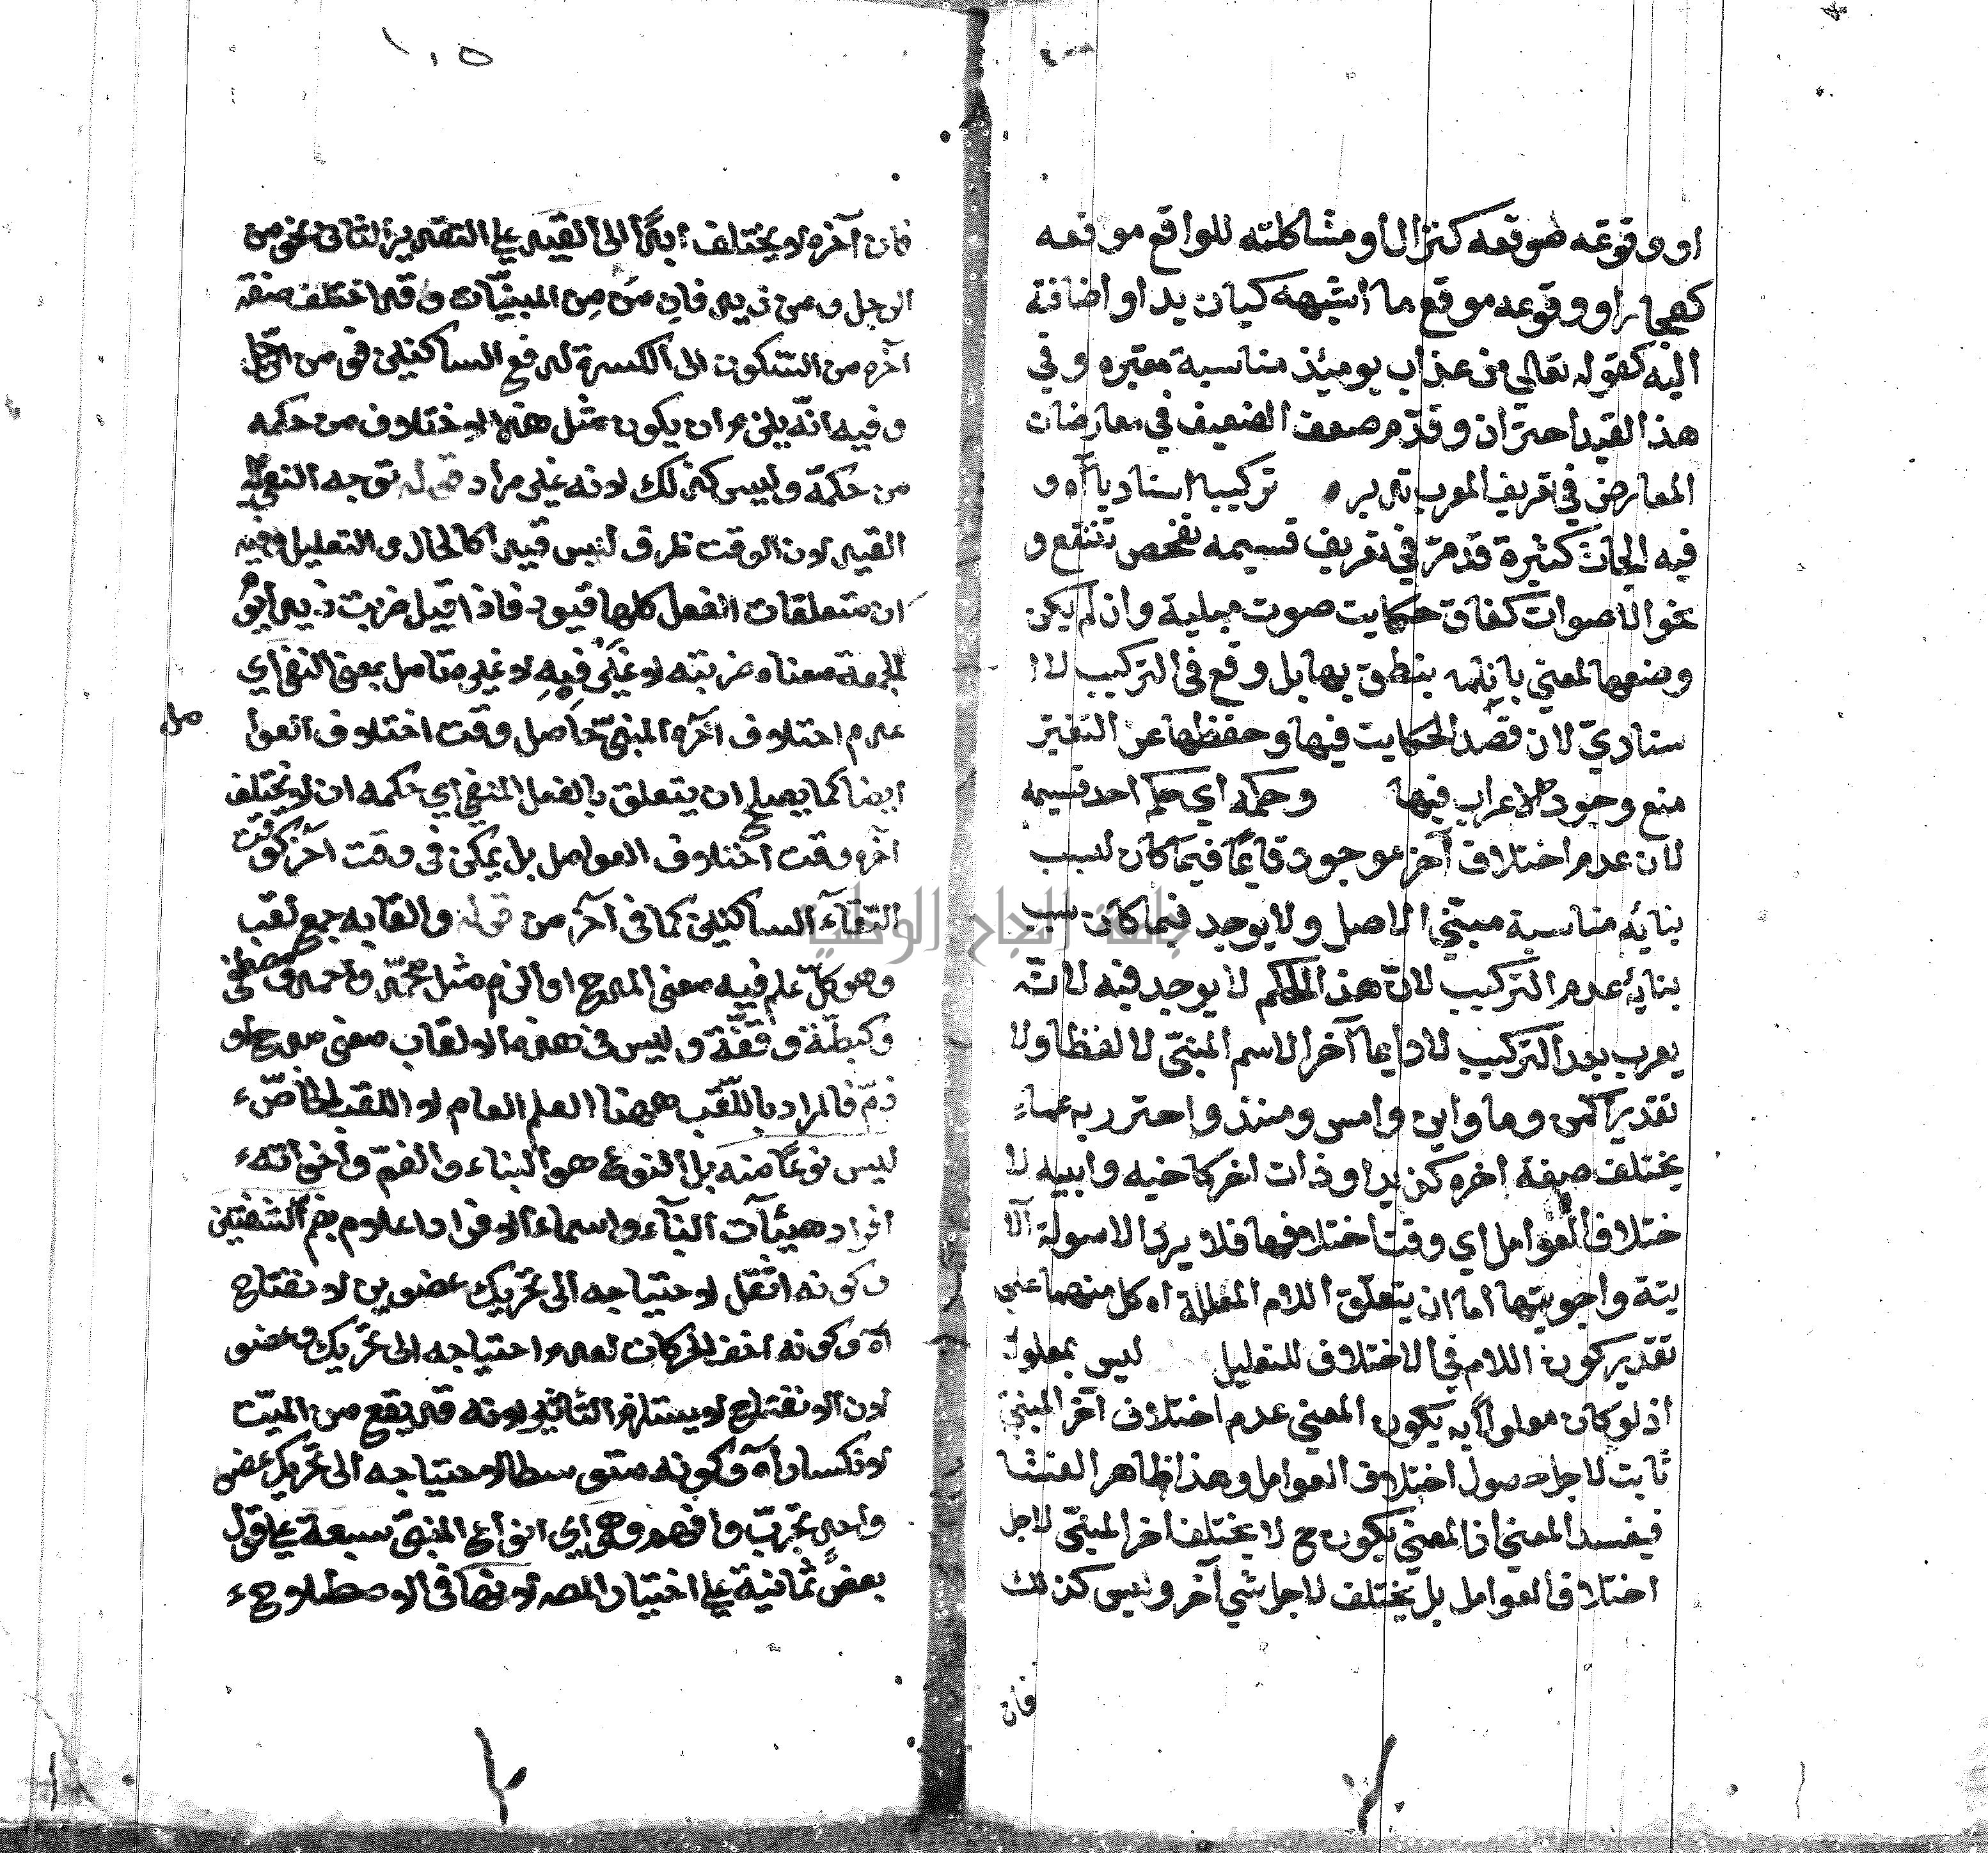 او وقوعه موقعه كنزال او مشاكلته للواقع موقعه
كفجار او وقوعه موقع ما اشبهه كيا زيد او اضافة
اليه كقوله تعالي من عذاب يومئذ مناسبة معتبره وفي
هذا القيد احتران وقدم ضعف الضعيف في معارضات
المعارض في تعريف المعرب تدبر تركيبا اسناديا آه و
فيه ابحاث كثيرة قد مرّ في تعريف قسيمه تفحص تنتفع و
نحو الاصوات كغاق حكايت صوت مبنية وان لم يكن
وضعها لمعني بانه ينطق بها بل وقع في التركيب الا
سنادي لان قصد الحكايت فيها وحفظها عن التغير
منع وجود الاعراب فيها وحكمه اي حكم احد قسيمه
لان عدم اختلاف آخر موجود قايما فيما كان لسبب
بنايه مناسبة مبني الاصل ولا يوجد فيما كان سبب
بنايه عدم التركيب لان هذا الحكم لا يوجد فيه لانه
يعرب بعد التركيب لا دايما آخر الاسم المبني لا لفظا ولا
تقديرا كمن وما واين وامس ومنذ واحترر به عما
يختلف صفة اخره كزيد او ذات اخر كاخيه وابيه لا
ختلاف العوامل اي وقت اختلافها فلا يرد الاسولة الآ
يتة واجوبتها اما ان يتعلق اللام المعللة اه كل منهما علي
تقدير كون اللام في الاختلاف للتعليل ليس بمعلول
اذ لو كان معلولا به يكون المعني عدم اختلاف آخر المبني
ثابت لاجل حصول اختلاف العوامل وهذا ظاهر
فيفسد المعني اذ المعني يكون ح لا يختلف اخر المبني لاجل
اختلاف العوامل بل يختلف لاجل شي آخر وليس كذلك
فان
١٠٥
فان آخره لا يختلف ابدًا الى القيد على التقدير الثاني نحو من
الرجل ومن زيد فان من من المبنيّات وقد اختلف صفة
آخره من السّكون الى الكسرة لدفع الساكنين في من الرّجل
وفيه انّه يلزم ان يكون مثل هذا الاختلاف من حكمه
من حكمة وليس كذلك لانه غير مراد قوله توجه النفي الى
القيد لان الوقت ظرف ليس قيدا كالحال والتعليل وفيه
ان متعلقات الفعل كلها قيود فاذا قيل ضربت زيدا يوم
الجمعة معناه ضربته لا غير فيه لا غيره تامل بمعنى النفي اي
عدم اختلاف آخر المبنيّ حاصل وقت اختلاف العوا
مل
ايضا كما يصلح ان يتعلق بالفعل المنفي اي حكمه ان لا يختلف
آخره وقت اختلاف العوامل بل يمكن في وقت آخر كوقت
التقآء الساكنين كما في آخر من قوله والقابه جمع لقب
وهو كلّ علم فيه معنى المدح او الذم مثل محمّد واحمد ومصطفى
وكبطّة وقفّة وليس في هذه الالقاب معنى مدح او
ذمّ فالمراد باللّقب ههنا العلم العام لا اللقب الخاصّ
ليس نوعًا منه بل النوع هو البناء والضمّ واخواته
افراد هيئآت البنآء واسماء الافراد اعلام بضم الشفتين
وكونه اثقل لاحتياجه الى تحريك عضوين لانفتاح
آه وكونه اخف الحركات لعدم احتياجه الى تحريك عضو
لان الانفتاح لا يستلزم التاثير لانه قد يقع من الميّت
لانكسار آه وكونه متوسطا لاحتياجه الى تحريك عضو
واحد تجرّب وافهم وهي اي انواع المبنيّ سبعة على قول
بعض ثمانية على اختيار المص لانها في الاصطلاح
جامعة النجاح الوطنية